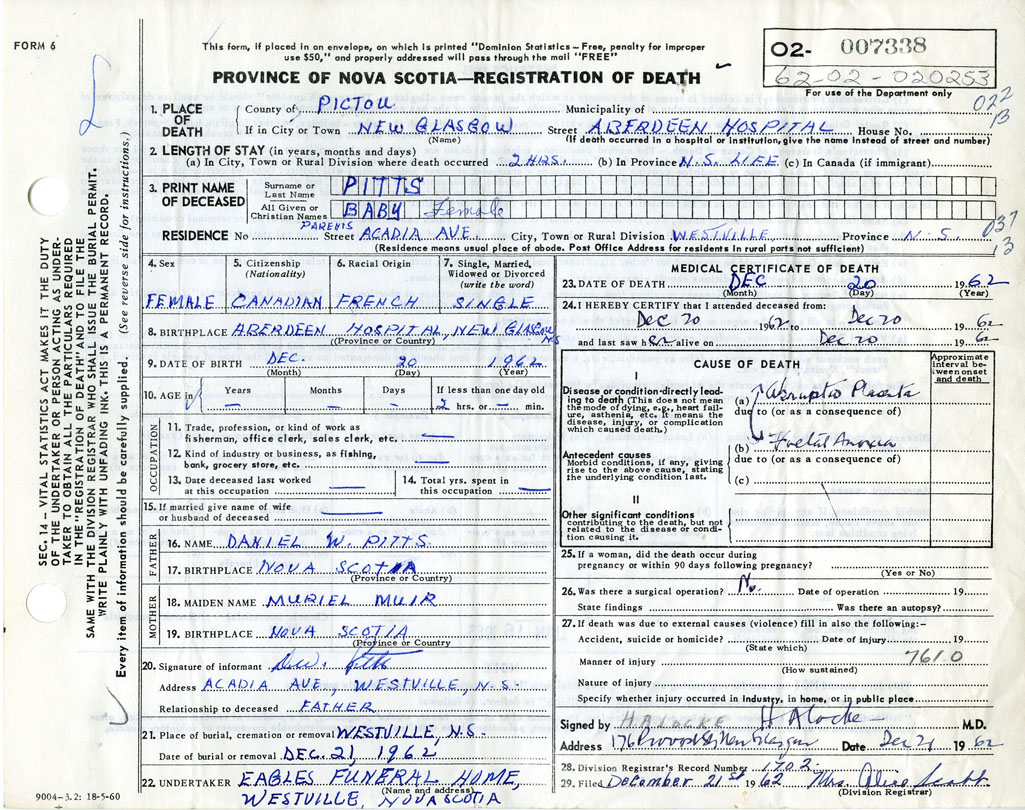 FORM 6
This form, if placed in an envelope, on which is printed "Dominion Statistics – Free, penalty for improper
use $50," and properly addressed will pass through the mail "FREE"
PROVINCE OF NOVA SCOTIA—REGISTRATION OF DEATH
O2- 007338
62-02-020253
For use of the Department only
022
13
1. PLACE OF DEATH
County of PICTOU Municipality of
If in City or Town NEW GLASGOW Street ABERDEEN HOSPITAL House No.
(Name) (If death occurred in a hospital or institution, give the name instead of street and number)
2. LENGTH OF STAY (in years, months and days)
(a) In City, Town or Rural Division where death occurred 2 HRS. (b) In Province N.S. LIFE (c) In Canada (if immigrant)
3. PRINT NAME OF DECEASED
Surname or Last Name PITTS
All Given or Christian Names BABY Female
037
3
PARENTS
RESIDENCE No Street ACADIA AVE. City, Town or Rural Division WESTVILLE Province N.S.
(Residence means usual place of abode. Post Office Address for residents in rural parts not sufficient)
4. Sex
FEMALE
5. Citizenship (Nationality)
CANADIAN
6. Racial Origin
FRENCH
7. Single, Married, Widowed or Divorced (write the word)
SINGLE
8. BIRTHPLACE ABERDEEN HOSPITAL, NEW GLASGOW NS
(Province or Country)
9. DATE OF BIRTH DEC. 20 1962
(Month) (Day) (Year)
10. AGE in Years – Months – Days – If less than one day old 2 hrs. or – min.
OCCUPATION
11. Trade, profession, or kind of work as
fisherman, office clerk, sales clerk, etc. —
12. Kind of industry or business, as fishing,
bank, grocery store, etc. —
13. Date deceased last worked
at this occupation —
14. Total yrs. spent in
this occupation —
15. If married give name of wife
or husband of deceased —
FATHER
16. NAME DANIEL W. PITTS
17. BIRTHPLACE NOVA SCOTIA
(Province or Country)
MOTHER
18. MAIDEN NAME MURIEL MUIR
19. BIRTHPLACE NOVA SCOTIA
(Province or Country)
20. Signature of informant
Address ACADIA AVE, WESTVILLE, N.S.
Relationship to deceased FATHER
21. Place of burial, cremation or removal WESTVILLE, N.S.
Date of burial or removal DEC. 21, 1962
22. UNDERTAKER EAGLES FUNERAL HOME,
(Name and address)
WESTVILLE, NOVA SCOTIA
9004-3.2: 18-5-60
MEDICAL CERTIFICATE OF DEATH
23. DATE OF DEATH DEC 20 1962
(Month) (Day) (Year)
24. I HEREBY CERTIFY that I attended deceased from:
Dec 20 1962 to Dec 20 1962
and last saw her alive on Dec 20 1962
CAUSE OF DEATH
Approximate interval between onset and death
I
Disease or condition directly leading to death (This does not mean
the mode of dying, e.g., heart failure, asthenia, etc. It means the
disease, injury, or complication
which caused death.)
(a) Abruptio Placenta
due to (or as a consequence of)
(b) Foetal Anoxia
due to (or as a consequence of)
(c)
Antecedent causes
Morbid conditions, if any, giving
rise to the above cause, stating
the underlying condition last.
II
Other significant conditions
contributing to the death, but not
related to the disease or condition causing it.
25. If a woman, did the death occur during
pregnancy or within 90 days following pregnancy?
(Yes or No)
26. Was there a surgical operation? No. Date of operation 19
State findings Was there an autopsy?
27. If death was due to external causes (violence) fill in also the following:–
Accident, suicide or homicide? Date of injury 19
(State which)
Manner of injury 761.0
(How sustained)
Nature of injury
Specify whether injury occurred in industry, in home, or in public place
Signed by H.A. LOCKE H A Locke M.D.
Address 176 Provost St New Glasgow Date Dec 21 1962
28. Division Registrar's Record Number 1702
29. Filed December 21st 1962 Mrs. Alice Scott
(Division Registrar)
SEC. 14 – VITAL STATISTICS ACT MAKES IT THE DUTY
OF THE UNDERTAKER OR PERSON ACTING AS UNDERTAKER TO OBTAIN ALL THE PARTICULARS REQUIRED
IN THE "REGISTRATION OF DEATH" AND TO FILE THE
SAME WITH THE DIVISION REGISTRAR WHO SHALL ISSUE THE BURIAL PERMIT.
WRITE PLAINLY WITH UNFADING INK. THIS IS A PERMANENT RECORD.
Every item of information should be carefully supplied. (See reverse side for instructions.)